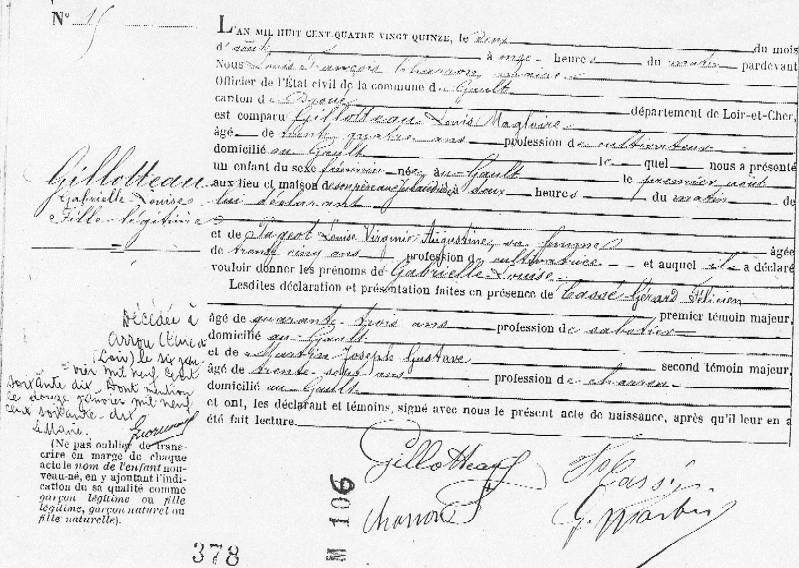 N° 15
L'AN MIL HUIT CENT QUATRE VINGT QUINZE, le deux du mois
d'août à onze heures du matin pardevant
Nous Louis François Charron, maire
Officier de l'État civil de la commune du Gault
canton de Droué département de Loir-et-Cher,
est comparu Gillotteau Louis Magloire
âgé de trente quatre ans profession de cultivateur
domicilié au Gault lequel nous a présenté
un enfant du sexe féminin née au Gault le premier août
aux lieu et maison de son père à deux heures du matin de
lui déclarant
et de Pageot Louise Virginie Augustine, sa femme âgée
de trente cinq ans profession de cultivatrice et auquel il a déclaré
vouloir donner les prénoms de Gabrielle Louise
Lesdites déclaration et présentation faites en présence de Cassé Gérard Félicien
premier témoin majeur,
âgé de quarante trois ans profession de sabotier
domicilié au Gault
et de Martin Joseph Gustave second témoin majeur,
âgé de trente ans profession de charron
domicilié au Gault
et ont, les déclarant et témoins, signé avec nous le présent acte de naissance, après qu'il leur en a
été fait lecture.
Gillotteau
Gabrielle Louise
Fille légitime
Décédée à
Arrou (Eure &
Loir) le six jan-
vier mil neuf cent
soixante dix. Dont mention
ce douze janvier mil neuf
cent soixante-dix
Le Maire,
(Ne pas oublier de trans-
crire en marge de chaque
acte le nom de l'enfant nou-
veau-né, en y ajoutant l'indi-
cation du sa qualité comme
garçon légitime ou fille
légitime, garçon naturel ou
fille naturelle).
Gillotteau
F Cassé
Charron
G. Martin
M 106
378